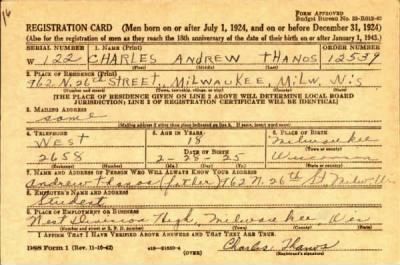 FORM APPROVED
Budget Bureau No. 33-R012-42
REGISTRATION CARD (Men born on or after July 1, 1924, and on or before December 31, 1924)
(Also for the registration of men as they reach the 18th anniversary of the date of their birth on or after January 1, 1943.)
SERIAL NUMBER 1. NAME (Print) ORDER NUMBER
W 122 CHARLES ANDREW THANOS 12539
(First) (Middle) (Last)
2. PLACE OF RESIDENCE (Print)
962 N. 26th STREET, MILWAUKEE MILW. WIS
(Number and street) (Town, township, village, or city) (County) (State)
[THE PLACE OF RESIDENCE GIVEN ON LINE 2 ABOVE WILL DETERMINE LOCAL BOARD
JURISDICTION; LINE 2 OF REGISTRATION CERTIFICATE WILL BE IDENTICAL]
3. MAILING ADDRESS
same
[Mailing address if other than place indicated on line 2. If same, insert word same]
4. TELEPHONE 5. AGE IN YEARS 6. PLACE OF BIRTH
WEST 18 Milwaukee
DATE OF BIRTH (Town or county)
2658 2-28-25 Wisconsin
(Exchange) (Number) (Mo.) (Day) (Yr.) (State or country)
7. NAME AND ADDRESS OF PERSON WHO WILL ALWAYS KNOW YOUR ADDRESS
Andrew Thanos (father) 962 N. 26th St Milw. Wis
8. EMPLOYER'S NAME AND ADDRESS
Student
9. PLACE OF EMPLOYMENT OR BUSINESS
West Division High, Milwaukee Wis
(Number and street or R. F. D. number) (Town) (County) (State)
I AFFIRM THAT I HAVE VERIFIED ABOVE ANSWERS AND THAT THEY ARE TRUE.
DSS Form 1 (Rev. 11-16-42) (OVER) Charles Thanos
(Registrant's signature)